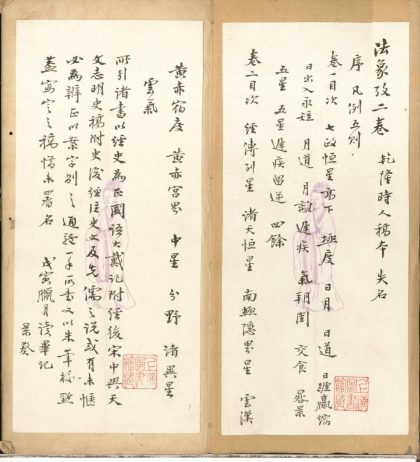 法象攷二卷 乾隆時人稿本 失名
序 凡例五则
卷一目次 七政恒星高下 極度 日月 日道 日躔贏縮
日出入永短 月道 月離遲疾 氣朔閏 交食 晷景
五星 五星遲疾留逆 四餘
卷二目次 經傳列星 諸天恒星 南極隱界星 雲漢
黄赤宿度 黄赤宫界 中星 分野 諸異星
雲氣
所引諸書以經史為正國語大戴記附經後宋中興天
文志明史稿附史後經注史文及先儒之說或有未愜
必為辨正以案字别之通體一手所書又以朱筆校㸃
蓋寫定之稿惜未署名 戊寅臘月讀畢記
景葵